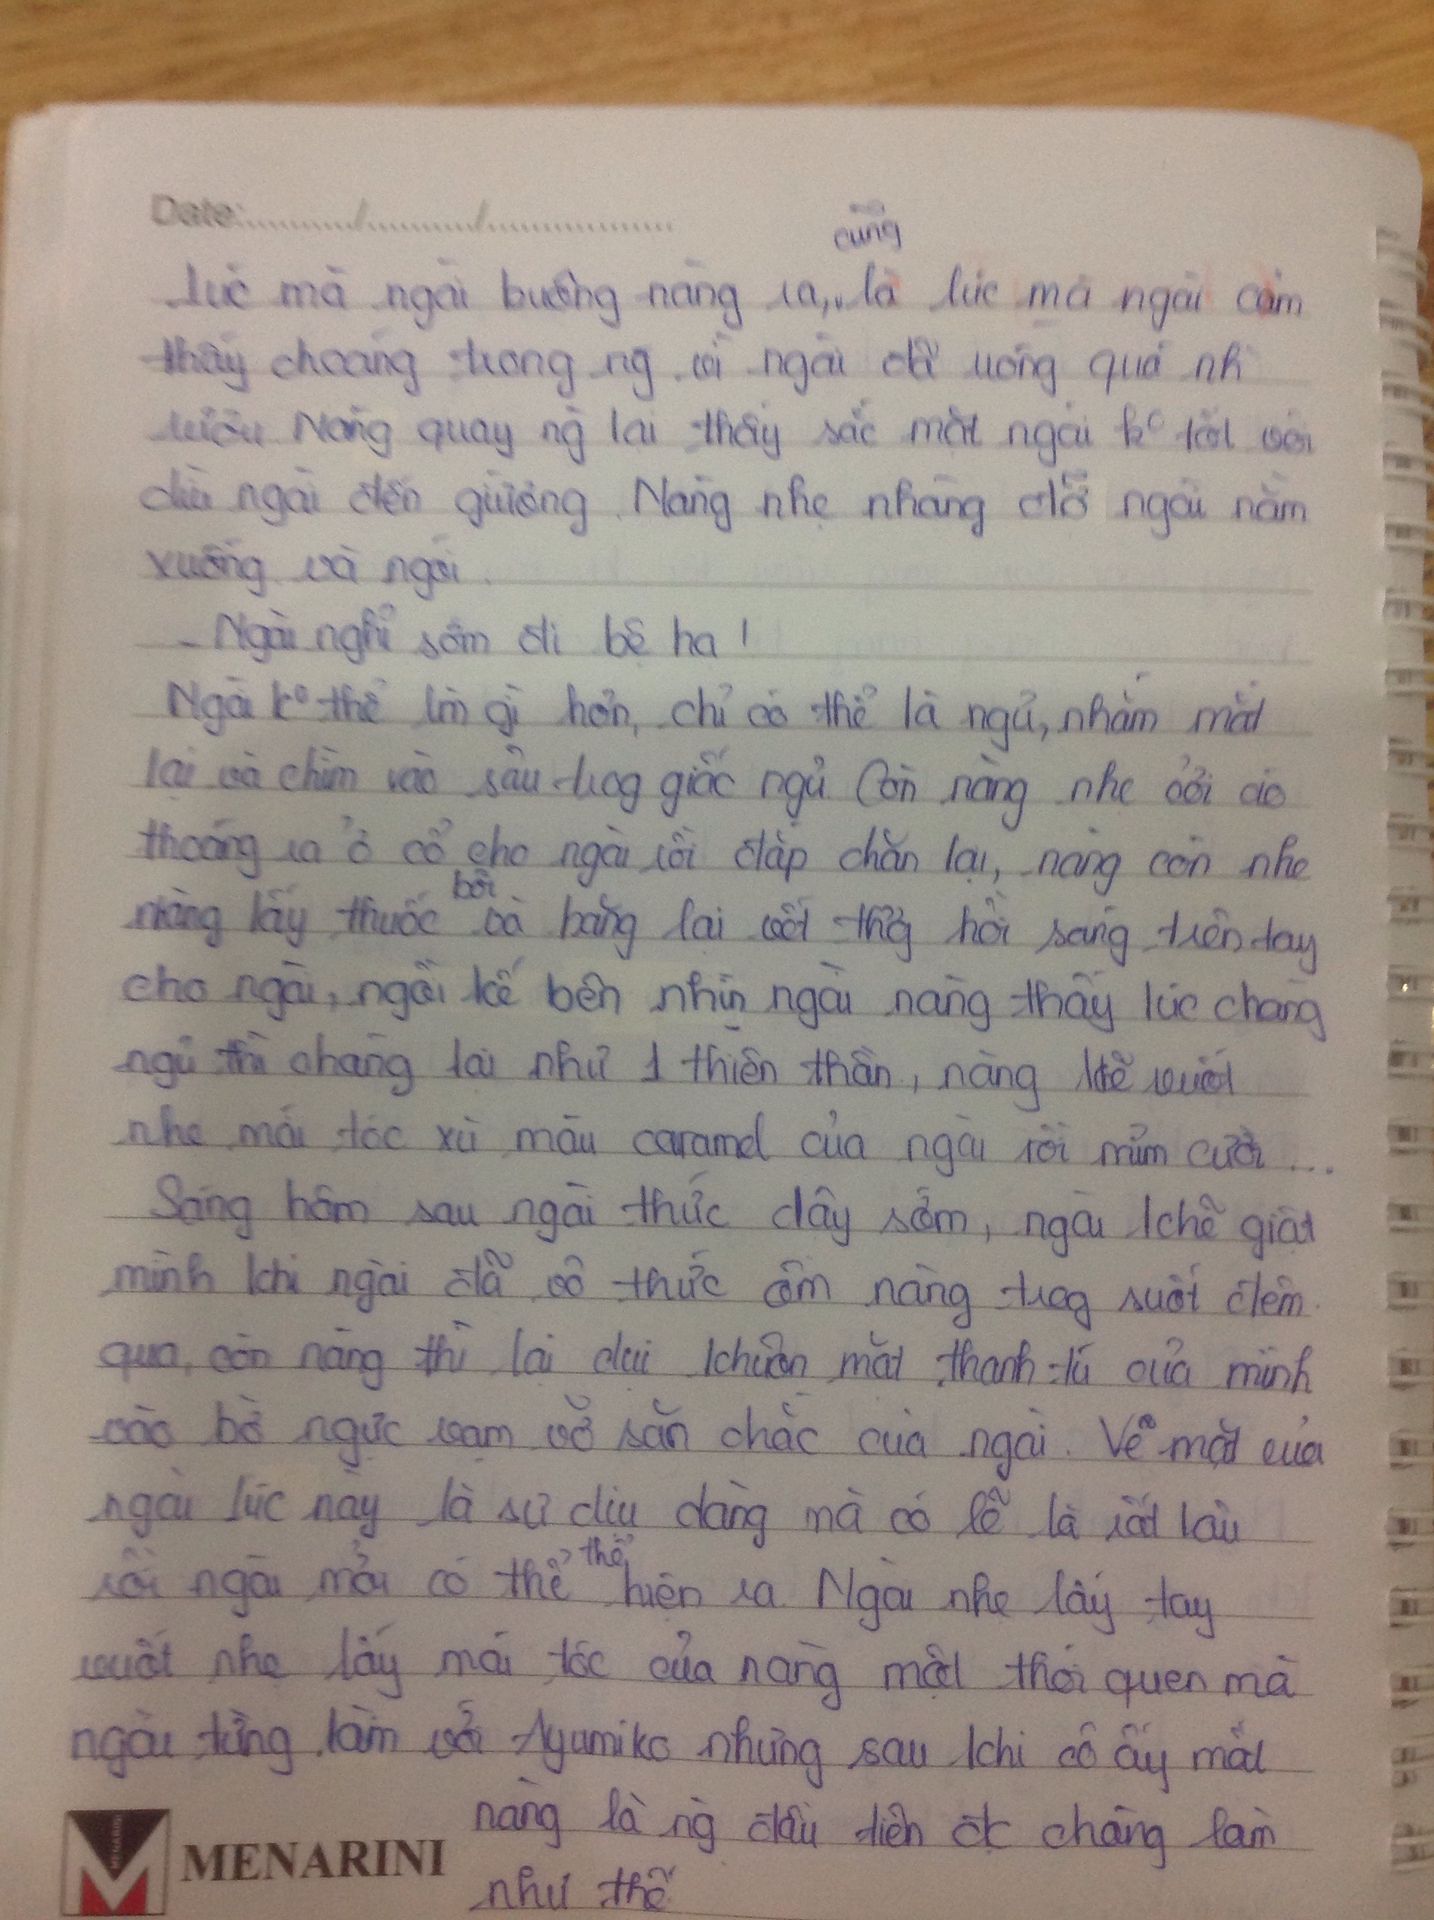 Date:
cũng
lúc mà ngài buông nàng ra, là lúc mà ngài cảm
thấy choáng trong ng vì ngài đã uống quá nh
rượu Nàng quay ng lại thấy sắc mặt ngài ko tốt vội
dìu ngài đến giường. Nàng nhẹ nhàng đỡ ngài nằm
xuống và ngồi.
- Ngài nghỉ sớm đi bệ hạ!
Ngài ko thể làm gì hơn, chỉ có thể là ngủ, nhắm mắt
lại và chìm vào sâu trog giấc ngủ Còn nàng nhẹ cởi áo
thoáng ra ở cổ cho ngài rồi đắp chăn lại, nàng còn nhẹ
bôi
nhàng lấy thuốc và băng lại vết thg hồi sáng trên tay
cho ngài, ngồi kế bên nhìn ngài nàng thấy lúc chàng
ngủ thì chàng lại như 1 thiên thần, nàng khẽ vuốt
nhẹ mái tóc xù màu caramel của ngài rồi mỉm cười...
Sáng hôm sau ngài thức dậy sớm, ngài khẽ giật
mình khi ngài đã vô thức ôm nàng trog suốt đêm
qua, còn nàng thì lại dụi khuôn mặt thanh tú của mình
vào bờ ngực vạm vỡ săn chắc của ngài. Vẻ mặt của
ngài lúc này là sự dịu dàng mà có lẽ là rất lâu
thể
rồi ngài mới có thể hiện ra Ngài nhẹ lấy tay
vuốt nhẹ lấy mái tóc của nàng một thói quen mà
ngài từng làm với Ayumiko nhưng sau khi cô ấy mất
nàng là ng đầu tiên đc chàng làm
như thế
MENARINI